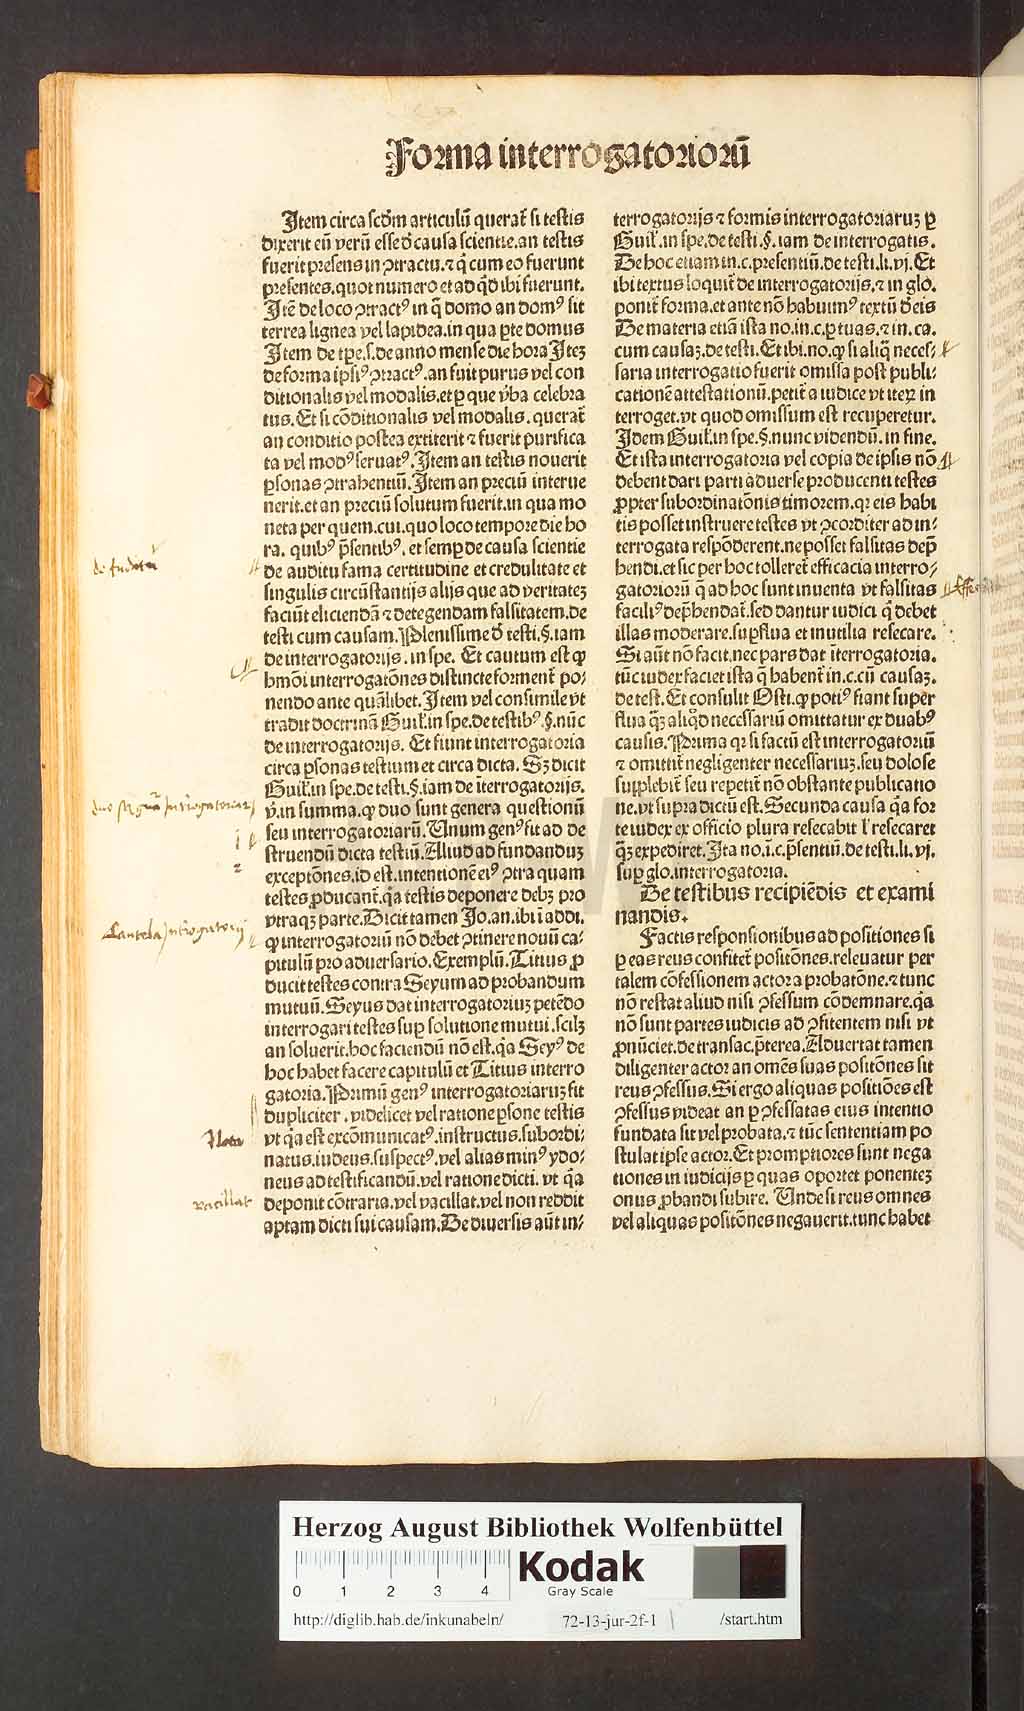 Forma interrogatoriorū
Item circa scđm articulū querat᷑ si testis
dixerit eū verū esse ð causa scientie.an testis
fuerit presens in ꝯtractu.⁊ q̇ cum eo fuerunt
presentes.quot numero et ad qd̓ ibi fuerunt.
Itē de loco ꝯtractꝰ in q̇ domo an domꝰ sit
terrea lignea vel lapidea.in qua ꝑte domus
Item de tꝑe.s.de anno mense die hora Iteꝫ
de forma ipsiꝰ ꝯtractꝰ.an fuit purus vel con
ditionalis vel modalis.et ꝑ que v̓ba celebra
tus. Et si cōditionalis vel modalis. querat᷑
an conditio postea extiterit ⁊ fuerit purifica
ta vel modꝰ seruatꝰ. Item an testis nouerit
ꝑsonas ꝯtrahentiū. Item an preciū interue
nerit.et an preciū solutum fuerit.in qua mo
neta per quem.cui.quo loco tempore die ho
ra. quibꝰ p̄sentibꝰ. et semꝑ de causa scientie
de auditu fama certitudine et credulitate et
singulis circūstantijs alijs que ad veritateꝫ
faciūt eliciendā ⁊ detegendam falsitatem.de
testi cum causam. Plenissime ð testi.§.iam
de interrogatorijs. in spe. Et cautum est ꝙ
hm̄oi interrogatōnes distincte forment᷑ po⸗
nendo ante quālibet. Item vel consimile vt
tradit doctrinā Guil̓.in spe.de testibꝰ.§.nūc
de interrogatorijs. Et fiunt interrogatoria
circa ꝑsonas testium et circa dicta. Sꝫ dicit
Guil̓.in spe.de testi.§.iam de īterrogatorijs.
v̓.in summa. ꝙ duo sunt genera questionū
seu interrogatoriarū. Unum genꝰ fit ad de
struendū dicta testiū. Aliud ad fundanduꝫ
exceptōnes.id est.intentionē eiꝰ ꝯtra quam
testes ꝓducant᷑.q̇a testis deponere debꝫ pro
vtraqꝫ parte. Dicit tamen Jo.an.ibi ī addi.
ꝙ interrogatoriū nō debet ꝯtinere nouū ca⸗
pitulū pro aduersario. Exemplū. Titius ꝓ
ducit testes contra Seyum ad probandum
mutuū. Seyus dat interrogatoriuꝫ petēdo
interrogari testes suꝑ solutione mutui.scilꝫ
an soluerit.hoc faciendū nō est.q̇a Seyꝰ de
hoc habet facere capitulū et Titius interro
gatoria. Primū genꝰ interrogatoriaruꝫ fit
dupliciter. videlicet vel ratione ꝑsone testis
vt q̇a est excōmunicatꝰ.instructus.subordi⸗
natus.iudeus.suspectꝰ.vel alias minꝰ ydo⸗
neus ad testificandū.vel ratione dicti. vt q̇a
deponit cōtraria.vel vacillat.vel non reddit
aptam dicti sui causam. De diuersis aūt in⸗
terrogatorijs ⁊ formis interrogatoriaruꝫ ꝑ
Guil̓.in spe.de testi.§.iam de interrogatis.
De hoc etiam in.c.presentiū.de testi.li.vj. Et
ibi textus loquit᷑ de interrogatorijs.⁊ in glo.
ponit᷑ forma.et ante nō habuimꝰ textū ð eis
De materia etiā ista no.in.c.ꝑ tuas.⁊ in.ca.
cum causaꝫ.de testi. Et ibi.no.ꝙ si aliq̄ neces⸗
saria interrogatio fuerit omissa post publi⸗
cationē attestationū.petit᷑ a iudice vt iteꝝ in
terroget.vt quod omissum est recuperetur.
Idem Guil̓.in spe.§.nunc videndū.in fine.
Et ista interrogatoria vel copia de ipsis nō
debent dari parti aduerse producenti testes
ꝓpter subordinatōnis timorem.qꝛ eis habi
tis posset instruere testes vt ꝯcorditer ad in⸗
terrogata respōderent.ne posset falsitas dep̄
hendi.et sic per hoc tolleret᷑ efficacia interro⸗
gatoriorū q̄ ad hoc sunt inuenta vt falsitas
faciliꝰ dep̄hendat᷑.sed dantur iudici q̇ debet
illas moderare.suꝑflua et inutilia resecare.
Si aūt nō facit.nec pars dat īterrogatoria.
tūc iudex faciet ista q̄ habent᷑ in.c.cū causaꝫ.
de test. Et consulit Osti.ꝙ potiꝰ fiant super
flua q̄ꝫ aliqd̓ necessariū omittatur ex duabꝰ
causis. Prima qꝛ si factū est interrogatoriū
⁊ omittit᷑ negligenter necessariuꝫ.seu dolose
supplebit᷑ seu repetit᷑ nō obstante publicatio
ne.vt supra dictū est. Secunda causa q̇a for
te iudex ex officio plura resecabit l̓ resecaret
q̄ꝫ expediret. Ita no.ī.c.p̄sentiū.de testi.li.vj.
suꝑ glo.interrogatoria.
De testibus recipiēdis et exami
nandis.
Factis responsionibus ad positiones si
ꝑ eas reus confitet᷑ positōnes.releuatur per
talem cōfessionem actor a probatōne.⁊ tunc
nō restat aliud nisi ꝯfessum cōdemnare.q̇a
nō sunt partes iudicis ad ꝯfitentem nisi vt
ꝓnūciet.de transac.p̄terea. Aduertat tamen
diligenter actor an omēs suas positōnes sit
reus ꝯfessus. Si ergo aliquas positiōes est
ꝯfessus videat an ꝑ ꝯfessatas eius intentio
fundata sit vel probata.⁊ tūc sententiam po
stulat ipse actor. Et promptiores sunt nega
tiones in iudicijs ꝑ quas oportet ponenteꝫ
onus ꝓbandi subire. Unde si reus omnes
vel aliquas positōnes negauerit.tunc habet
Cautela Introgatorij
Nota
vacillat
Herzog August Bibliothek Wolfenbüttel
0 1 2 3 4
Kodak
Gray Scale
http://diglib.hab.de/inkunabeln/
72-13-jur-2f-1
/start.htm